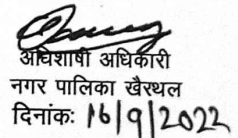 अधिशाषी अधिकारी
नगर पालिका खैरथल
दिनांकः 16/9/2022